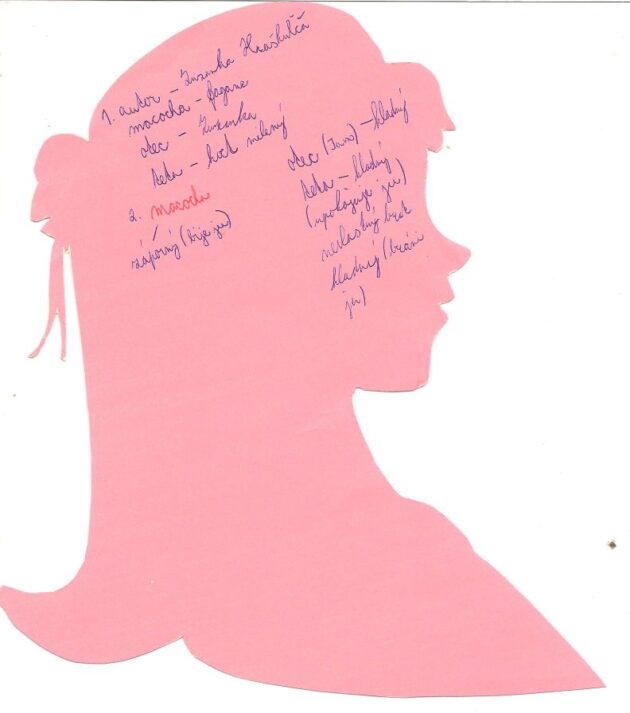 1. autor – Zuzanka Hraškulča
macocha – fagane
otec – Zuzanka
teta – kvet melený
2. macocha
/
záporný (bije ju)
otec (Juro) – kladný
teta – kladný
(upokojuje ju)
nevlastný brat
kladný (bráni
ju)